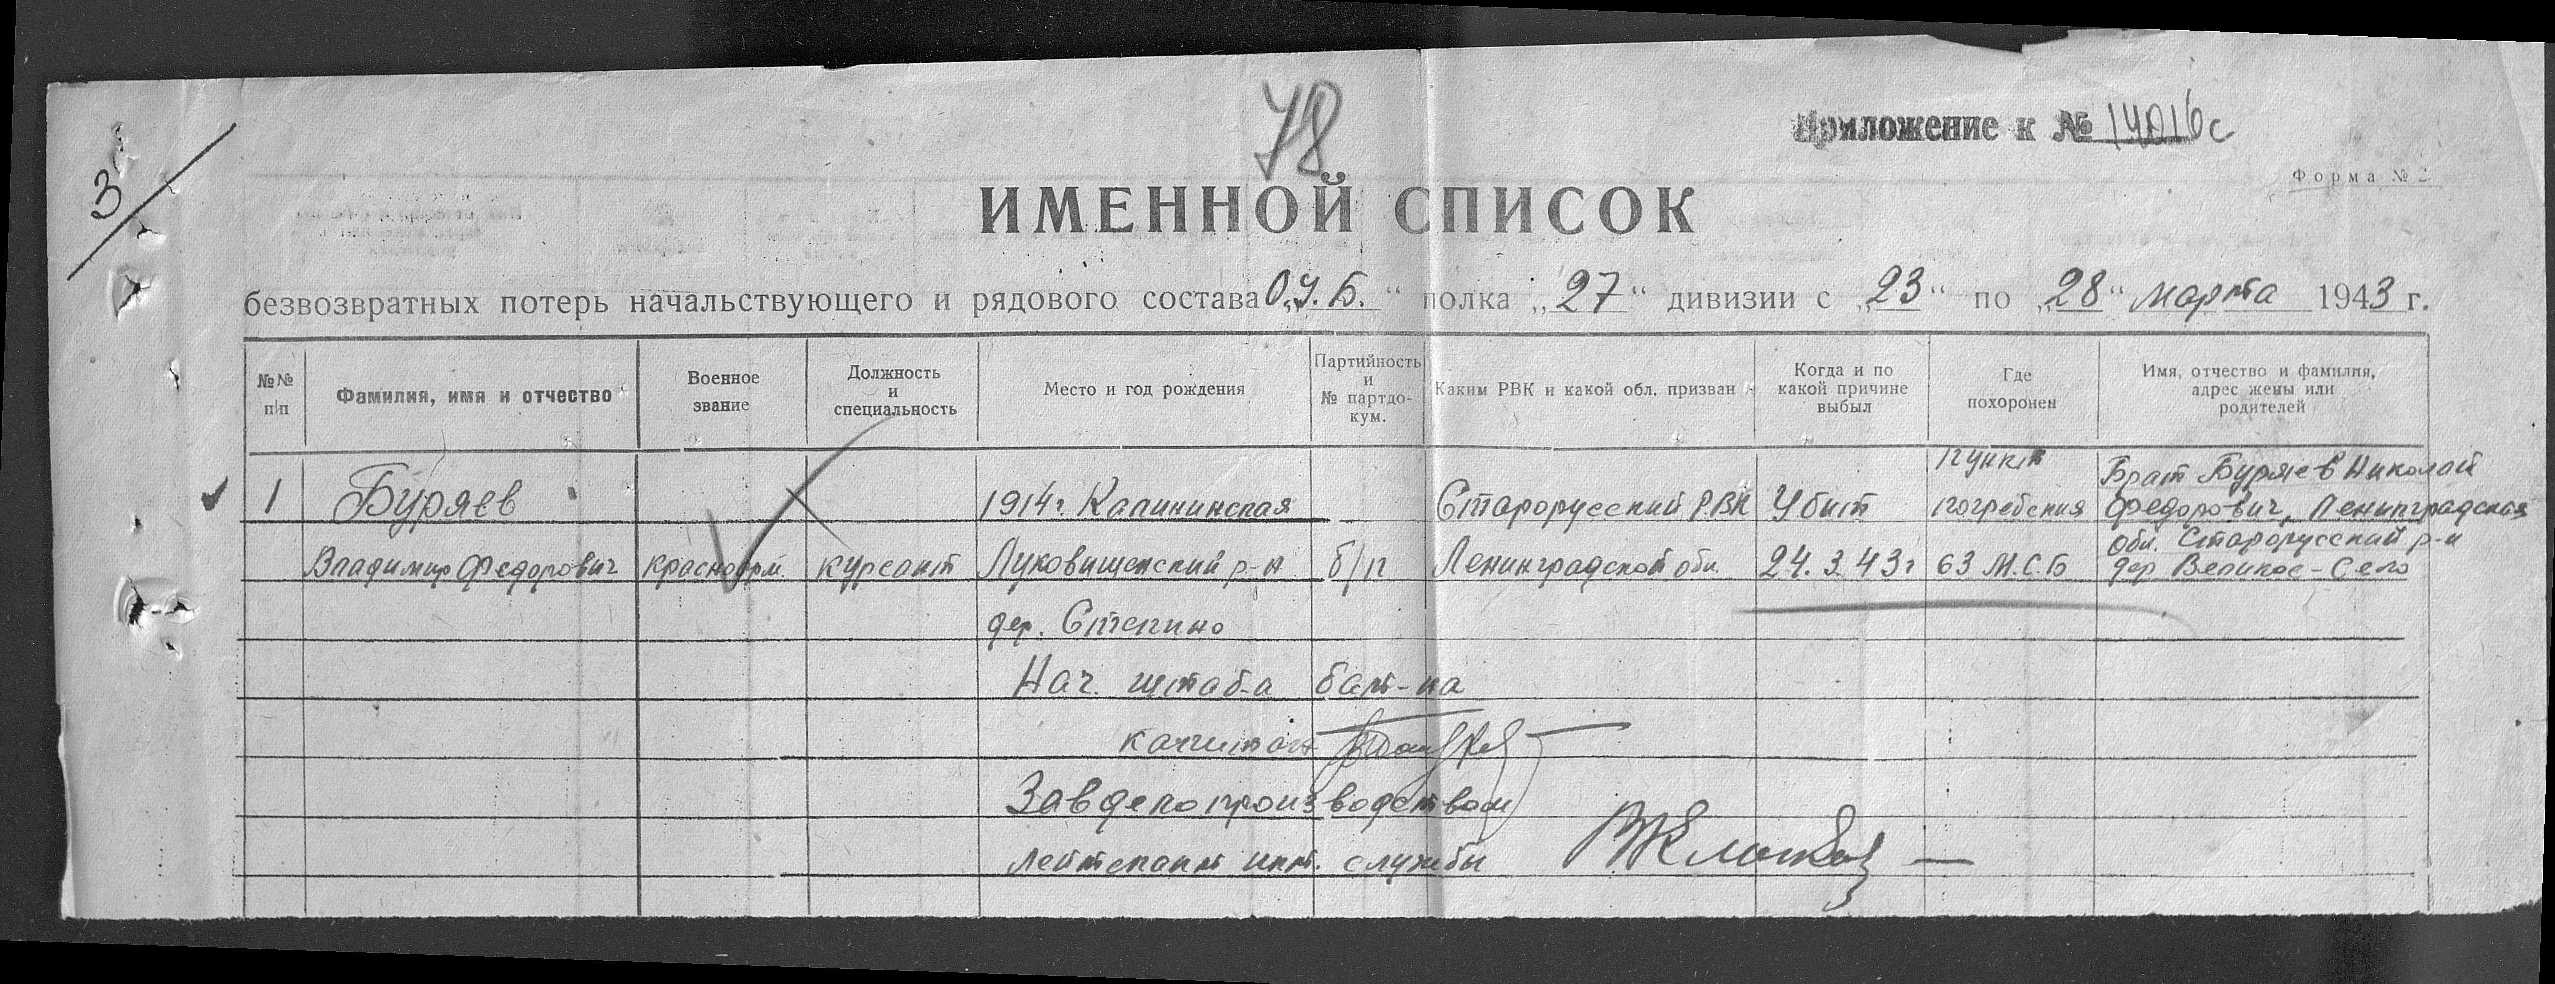 78
Приложение к № 14016с
3
Форма № 2
ИМЕННОЙ СПИСОК
безвозвратных потерь начальствующего и рядового состава „О.У.Б.“ полка „27“ дивизии с „23“ по „28“ марта 1943 г.
№№ п/п Фамилия, имя и отчество Военное звание Должность и специальность Место и год рождения Партийность и № партдокум. Каким РВК и какой обл. призван Когда и по какой причине выбыл Где похоронен Имя, отчество и фамилия, адрес жены или родителей
1 Буряев 1914г. Калининская Старорусский РВК Убит пункт погребения Брат Буряев Николай Федорович, Ленинградская
Владимир Федорович красноарм. курсант Луковищенский р-н б/п Ленинградской обл. 24.3.43г 63 М.С.Б обл. Старорусский р-н дер Великое-Село
дер. Степино
Нач. штаб-а бат-на
капитан
Завделопроизводством
лейтенант инт. службы